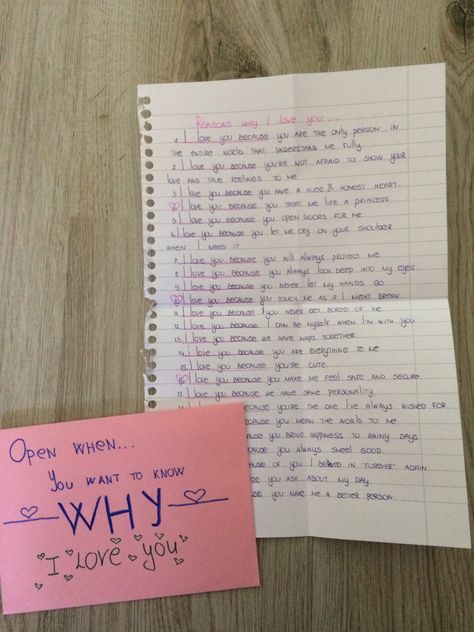 Reasons why I love you...
1. I love you because you are the only person in
the entire world that understand me fully.
2. I love you because you're not afraid to show your
love and true feelings to me
3. I love you because you have a huge & honest heart.
I love you because you treat me like a princess
5. I love you because you open doors for me
6. I love you because you let me cry on your shoulder
when I need it.
7. I love you because you will always protect me
8. I love you because you always look deep into my eyes
9. I love you because you never let my hands go
I love you because you touch me as if I might break
11. I love you because you never get bored of me.
12. I love you because I can be myself when I'm with you
13. I love you because we have naps together.
14. I love you because you are everything to me
15. I love you because you're cute.
I love you because you make me feel safe and secure
17. I love you because we have same personality.
because you're the one I've always wished for
because you mean the world to me
because you bring happiness to rainy days
because you always smell good.
because of you I believed in "forever" again
because you ask about my day.
because you make me a better person
Open when...
you want to know
WHY
I love you